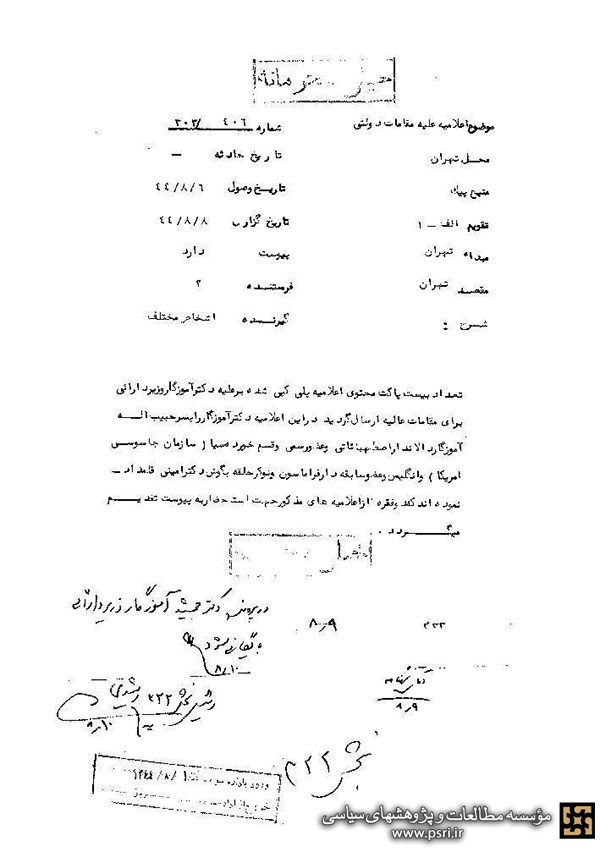 خیلی محرمانه
موضوع اعلامیه علیه مقامات دولتی
شماره ۴۰۶ /۳۰۳
محل تهران
تاریخ حادثه —
منبع پیک
تاریخ وصول ۴۴/۸/۶
تقویم الف – ۱
تاریخ گزارش ۴۴/۸/۸
مبداء تهران
پیوست دارد
مقصد تهران
فرستنده ؟
شرح :
گیرنده اشخاص مختلف
تعداد بیست پاکت محتوی اعلامیه پلی کپی شده برعلیه دکترآموزگاروزیردارائی
برای مقامات عالیه ارسال گردید در این اعلامیه دکترآموزگارراپسرحبیب اله
آموزگاردالاندار اصطهباناتی وعضورسمی وقسم خورده سیا ( سازمان جاسوسی
امریکا ) وانگلیس وعضوسابقه دارفراماسون ونوکرحلقه بگوش دکترامینی قلمداد ـ
نموده اند که دوفقره ازاعلامیه های مذکورجهت استحضاربه پیوست تقدیم
میگردد .
در پرونده دکتر جمشید آموزگار وزیر دارائی
۸/۹
۳۳۳
بایگانی شود
۸/۱۰
۸/۹
بخش ۳۲۲
۸/۱۰
بخش ۳۲۲
۱۳۴۴/۸/۱
مؤسسه مطالعات و پژوهشهای سیاسی
www.psri.ir